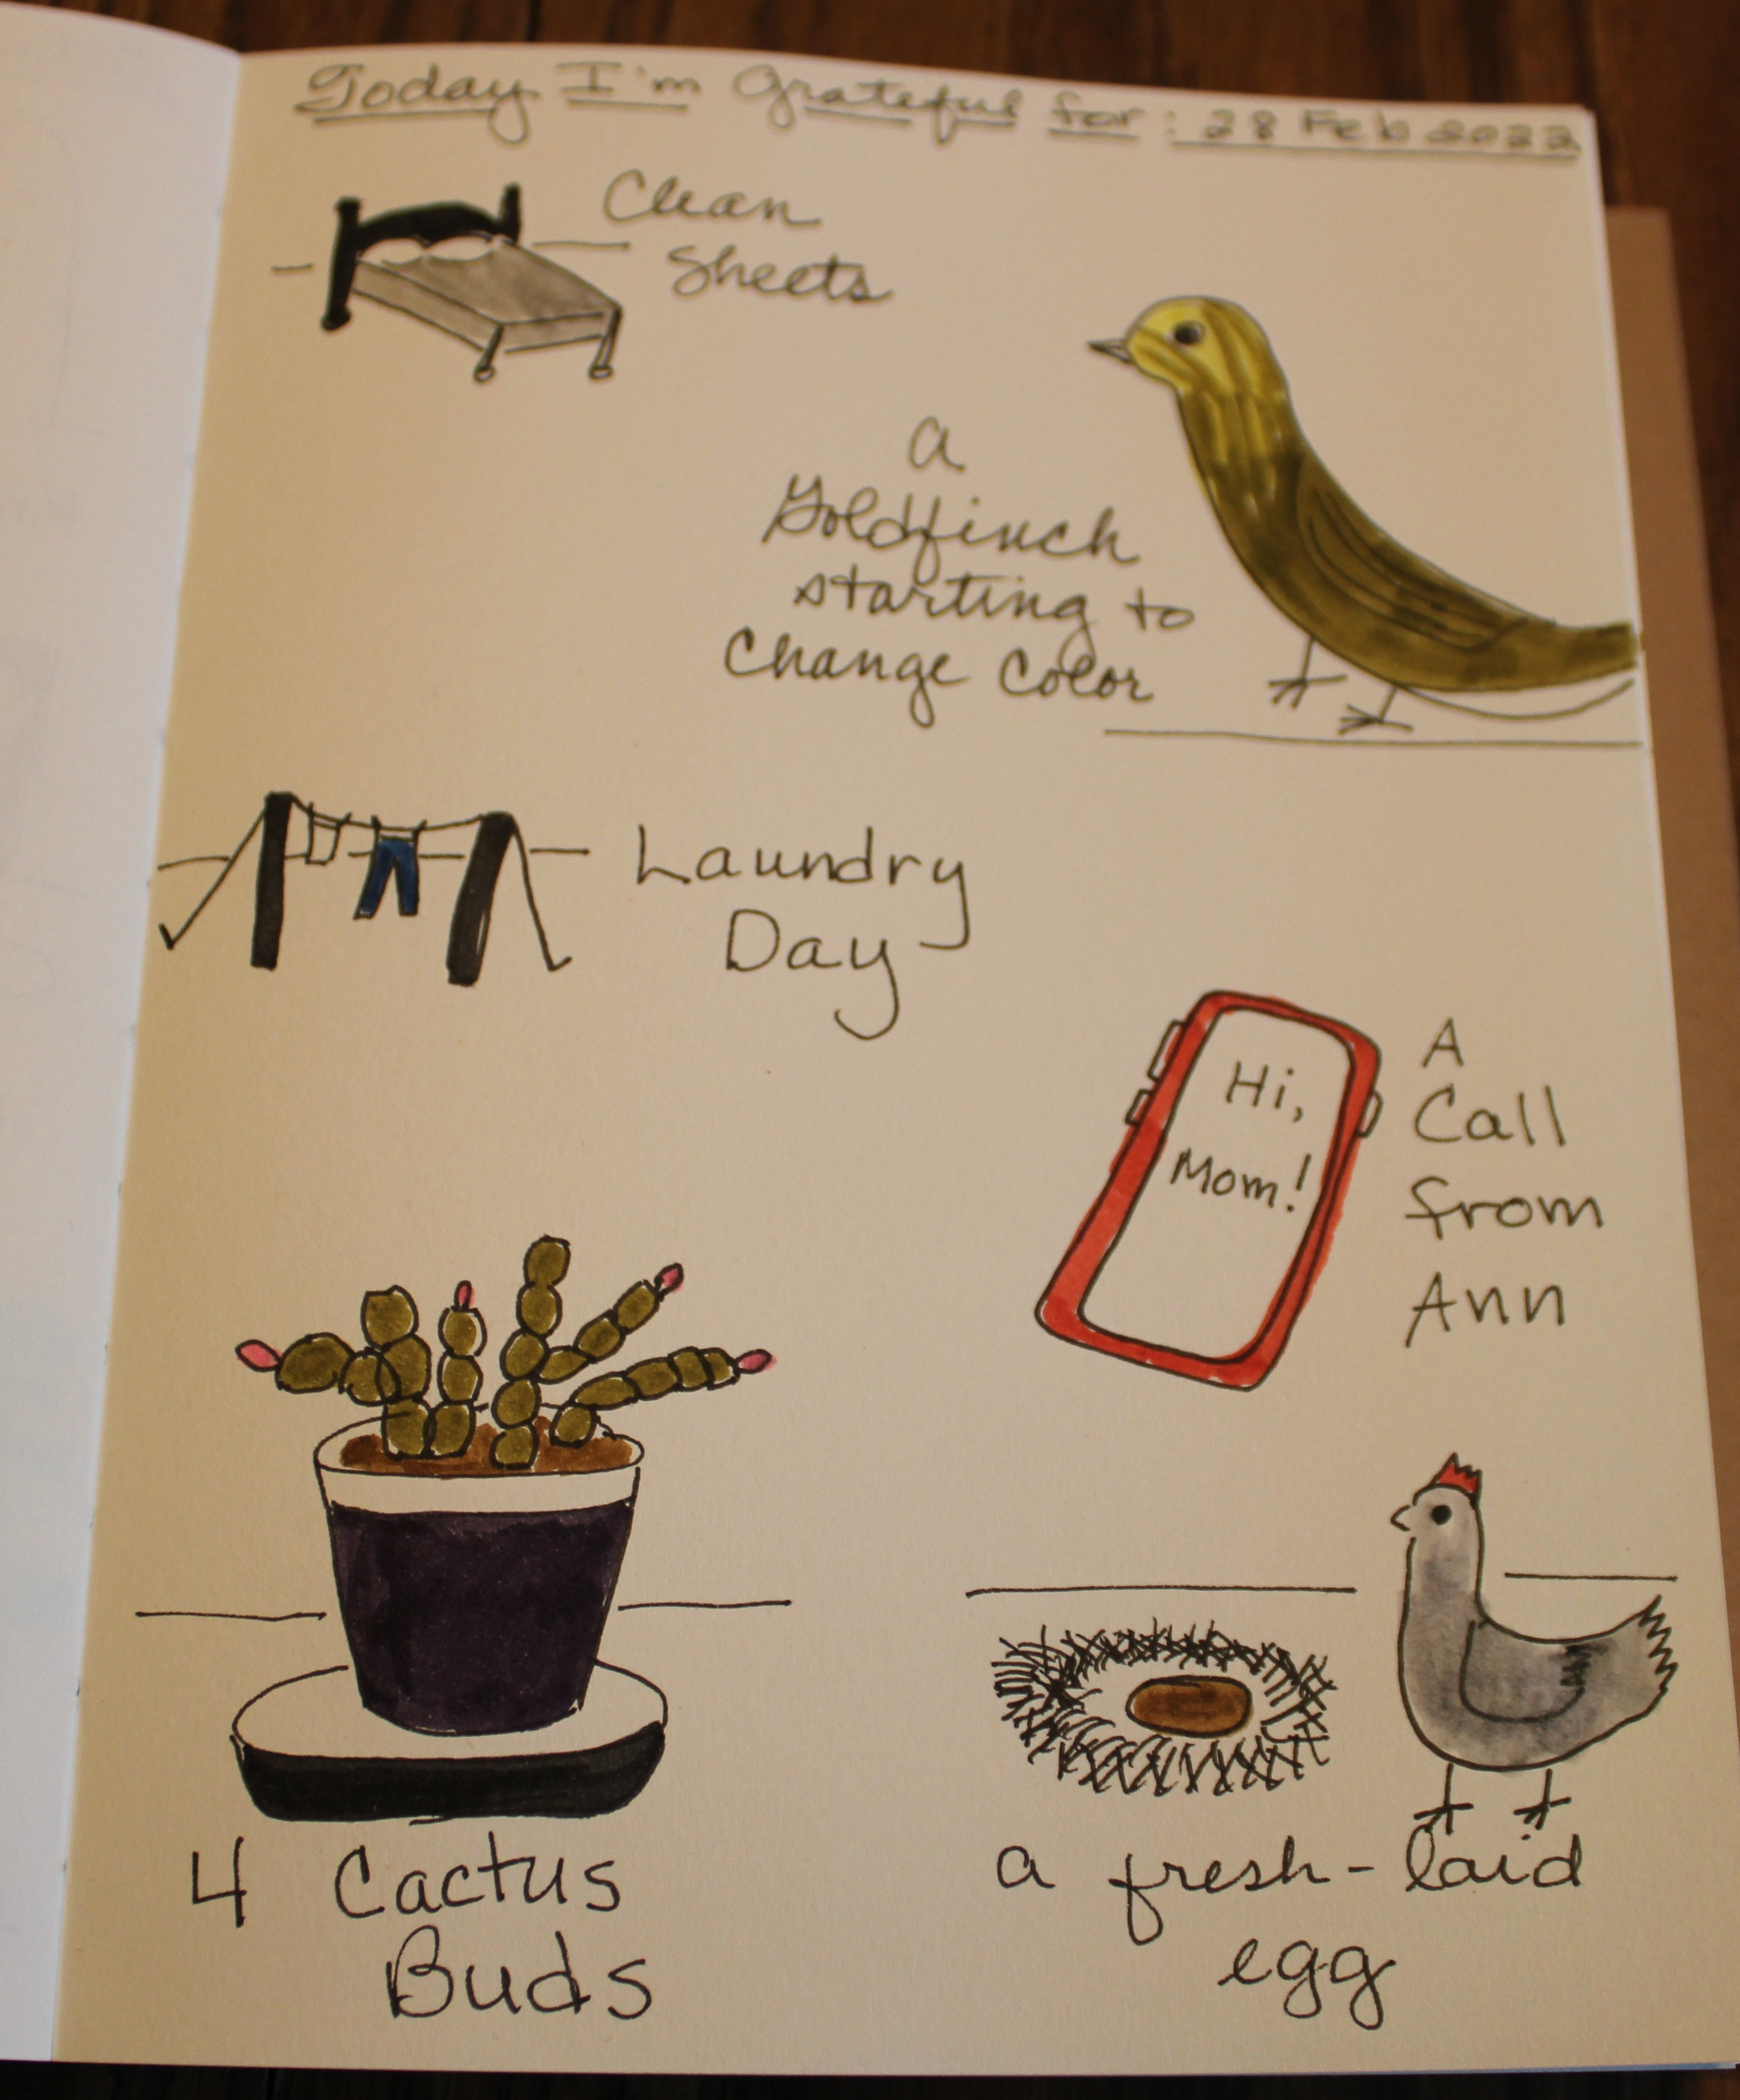 Today I'm Grateful for: 28 Feb 2022
Clean
Sheets
a
Goldfinch
starting to
Change Color
Laundry
Day
Hi,
Mom!
A
Call
from
Ann
4 Cactus
Buds
a fresh-laid
egg